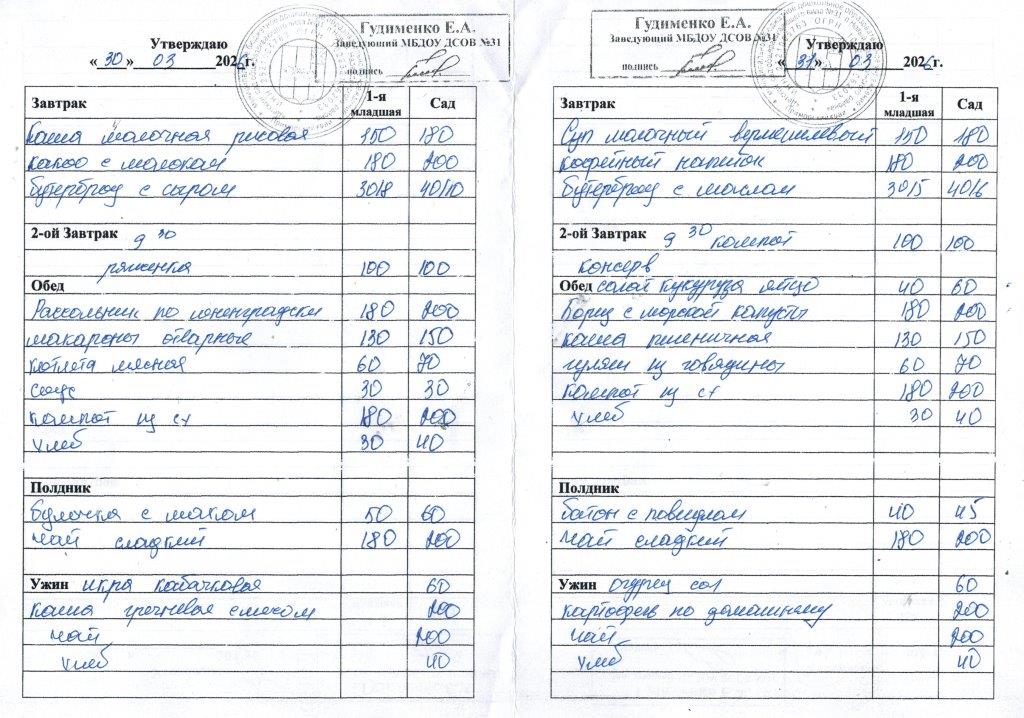 Гудименко Е.А.
Заведующий МБДОУ ДСОВ №31
подпись
Утверждаю
«30» 03 2026г.
Завтрак 1-я младшая Сад
Каша молочная рисовая 150 180
какао с молоком 180 200
бутерброд с сыром 30/8 40/10
2-ой Завтрак 9 30
ряженка 100 100
Обед
Рассольник по ленинградски 180 200
макароны отварные 130 150
котлета мясная 60 70
соус 30 30
компот из сх 180 200
хлеб 30 40
Полдник
булочка с маком 50 60
чай сладкий 180 200
Ужин икра кабачковая 60
каша гречневая с мясом 200
чай 200
хлеб 40
Гудименко Е.А.
Заведующий МБДОУ ДСОВ №31
подпись
Утверждаю
«31» 03 2026г.
Завтрак 1-я младшая Сад
Суп молочный вермешлевый 150 180
кофейный напиток 180 200
бутерброд с маслом 30/5 40/6
2-ой Завтрак 9 30 компот 100 100
консерв
Обед салат кукуруза яйцо 40 60
Борщ с морской капусты 180 200
каша пшеничная 130 150
гуляш из говядины 60 70
компот из сх 180 200
хлеб 30 40
Полдник
батон с повидлом 40 45
чай сладкий 180 200
Ужин огурец сол 60
картофель по домашнему 200
чай 200
хлеб 40